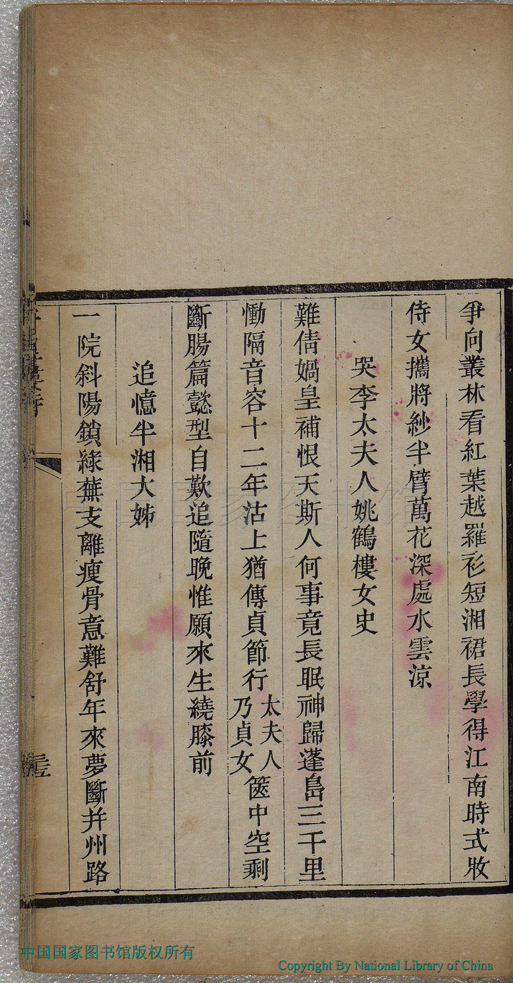 爭向叢林看紅葉越羅衫短湘裙長學得江南時式妝
侍女攜將紗半臂萬花深處水雲涼
哭李太夫人姚鶴樓女史
難倩媧皇補恨天斯人何事竟長眠神歸蓬島三千里
慟隔音容十二年沽上猶傳貞節行太夫人乃貞女篋中空剩
斷腸篇懿型自歎追隨晚惟願來生繞膝前
追憶半湘大姊
一院斜陽鎖綠蕪支離瘦骨意難舒年來夢斷并州路
中国国家图书馆版权所有
Copyright By National Library of China